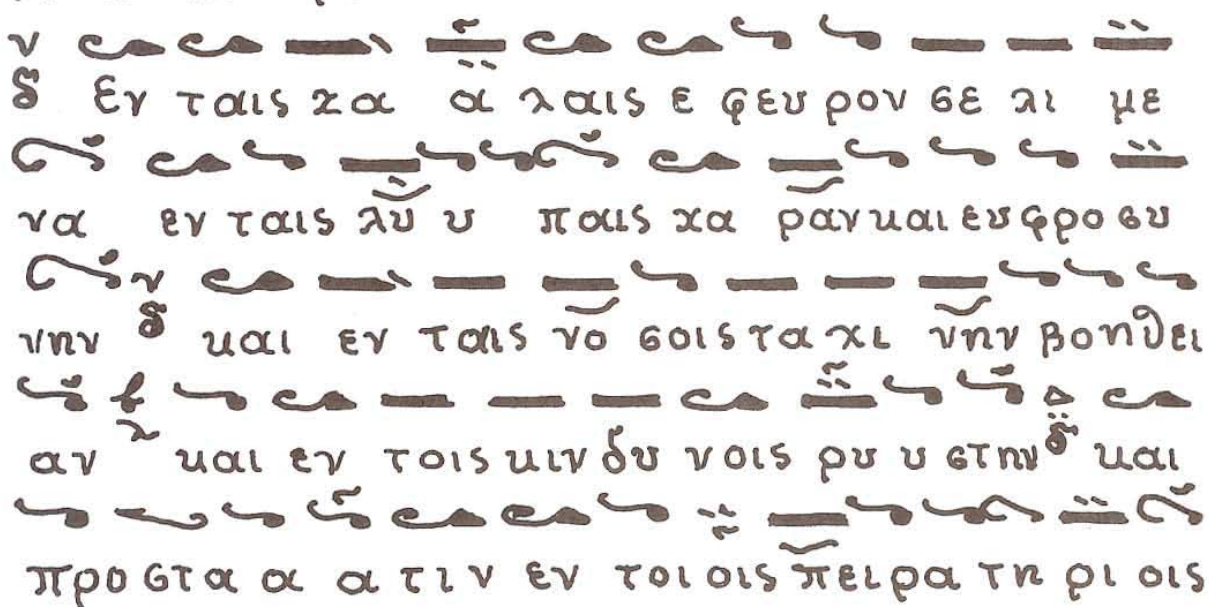 δ Εν ταις ζα α λαις ε φευ ρον σε λι με
να εν ταις λυ υ παις χα ραν και ευ φρο συ
νην δ και εν ταις νο σοις τα χι νην βο η θει
αν λ και εν τοις κιν δυ νοις ρυ υ στην δ και
προ στα α α τιν εν τοι οις πει ρα τη ρι οις